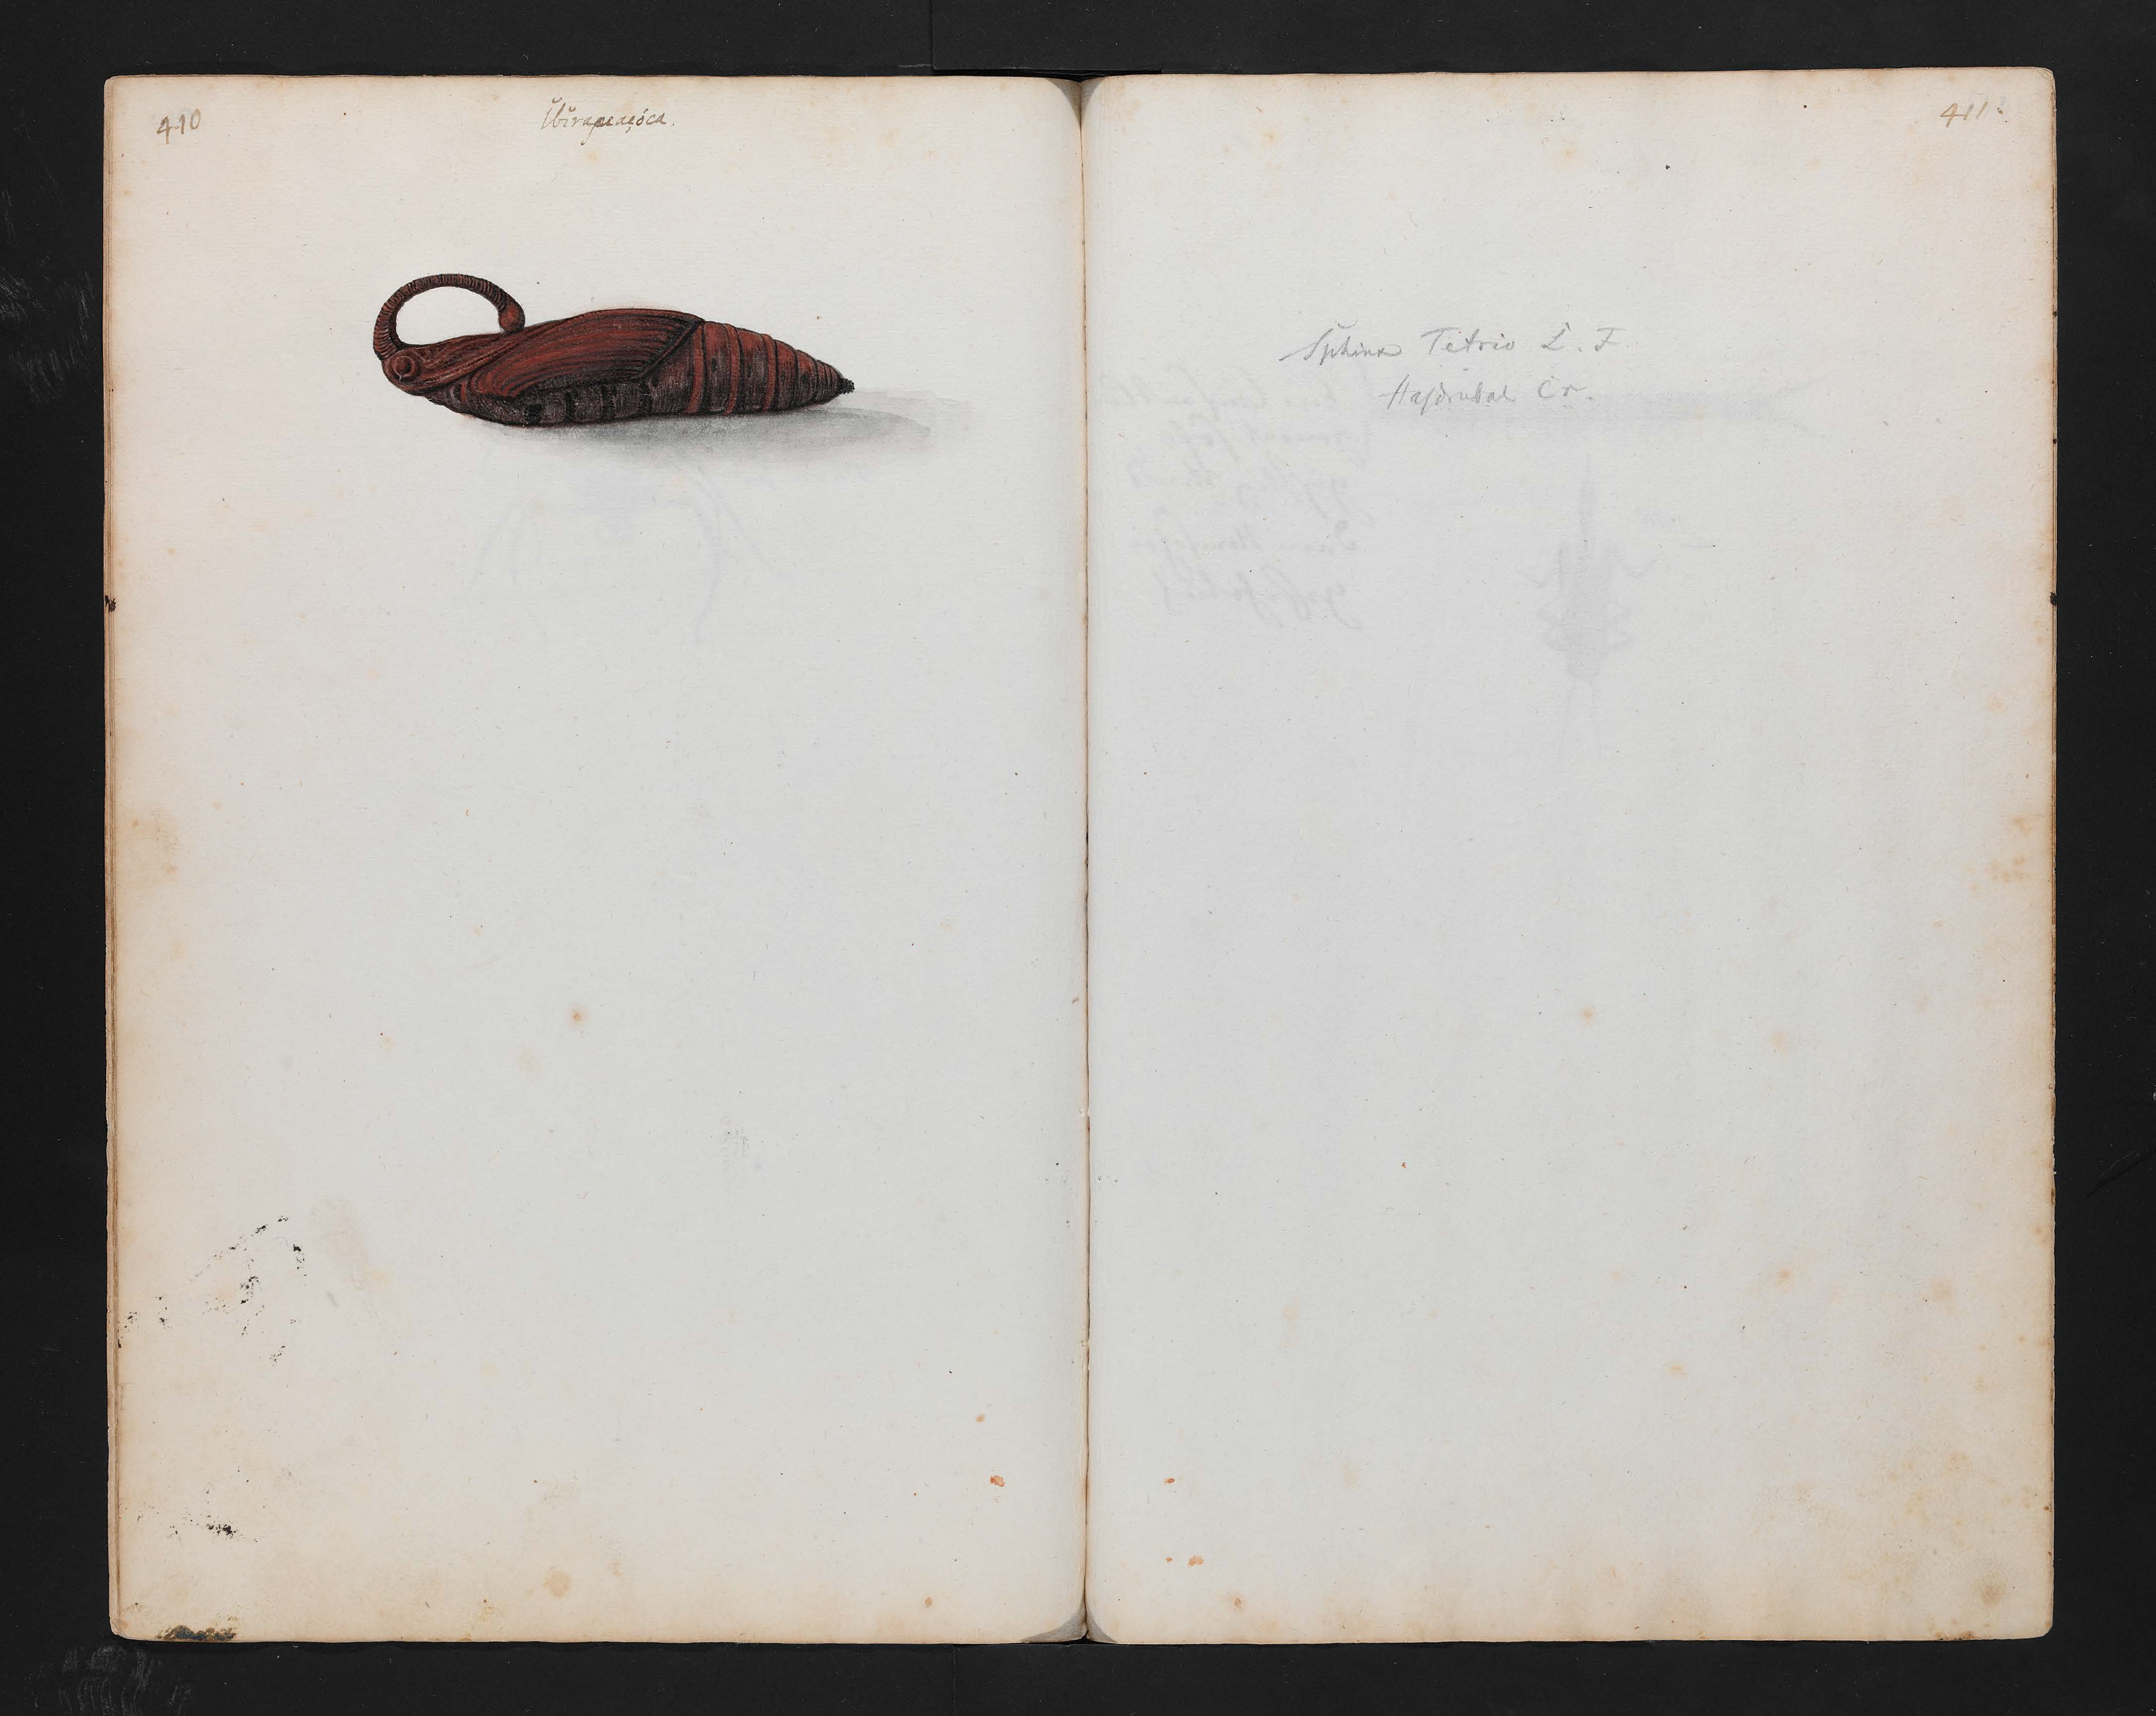 410
Ibirapeaçóca.
411.
Sphinx Tetrio L. F.
Hasdrubal Cr.